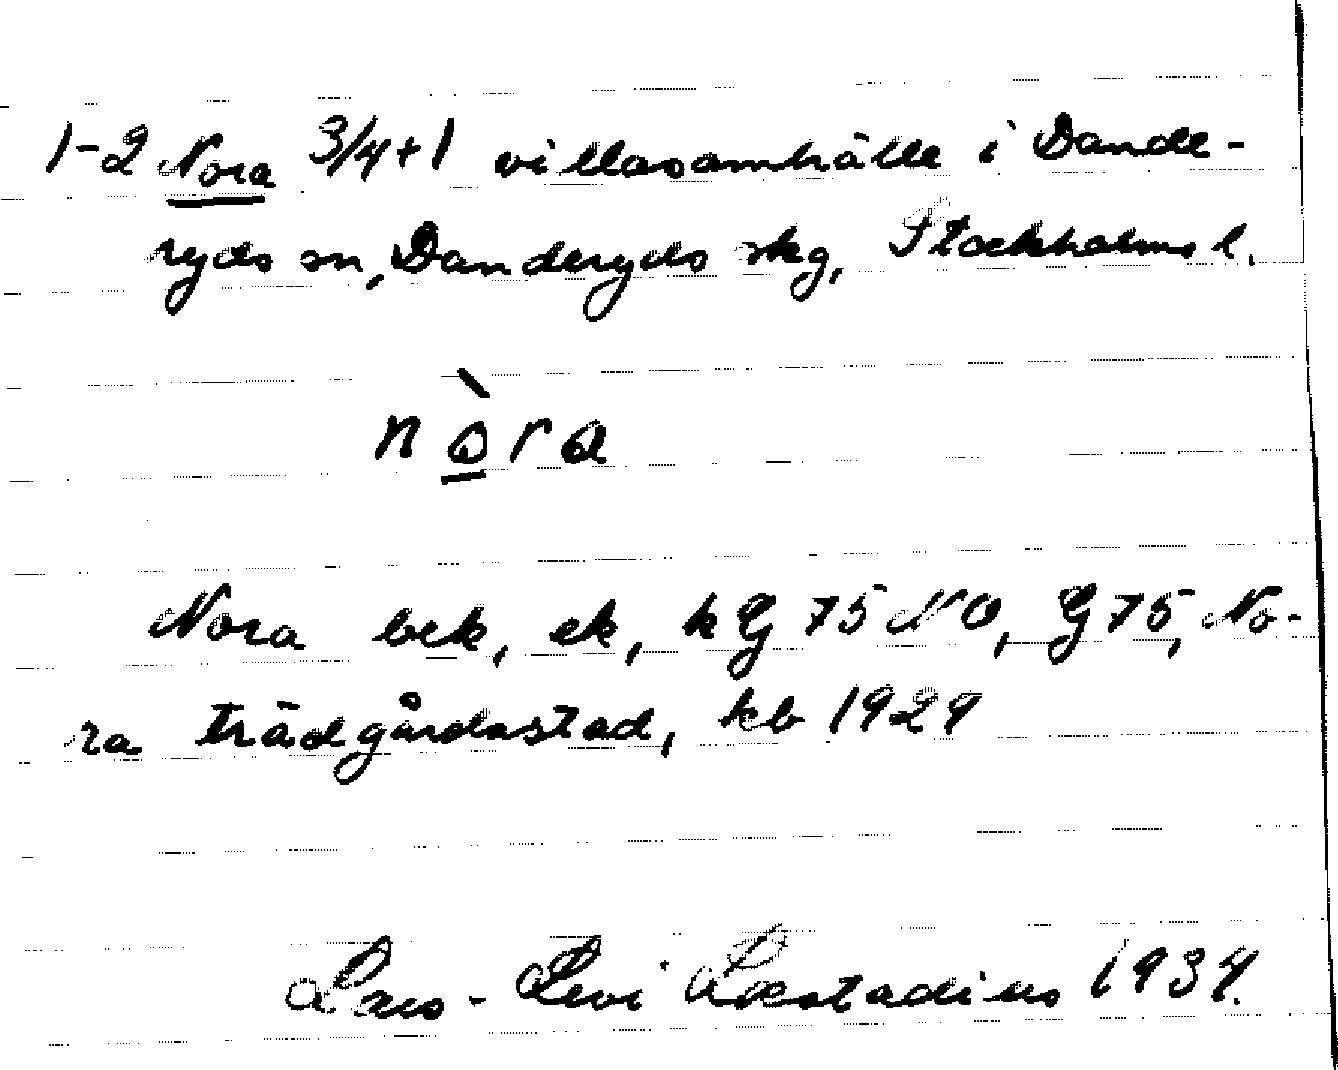 1-2 Nora 3/4+1 villasamhälle i Dande-
ryds sn, Danderyds skg, Stockholms l.
nòra
Nora bek, ek, kG 75 NO, G 75, No-
ra trädgårdsstad, kb 1929
Lars-Levi Læstadius 1934.